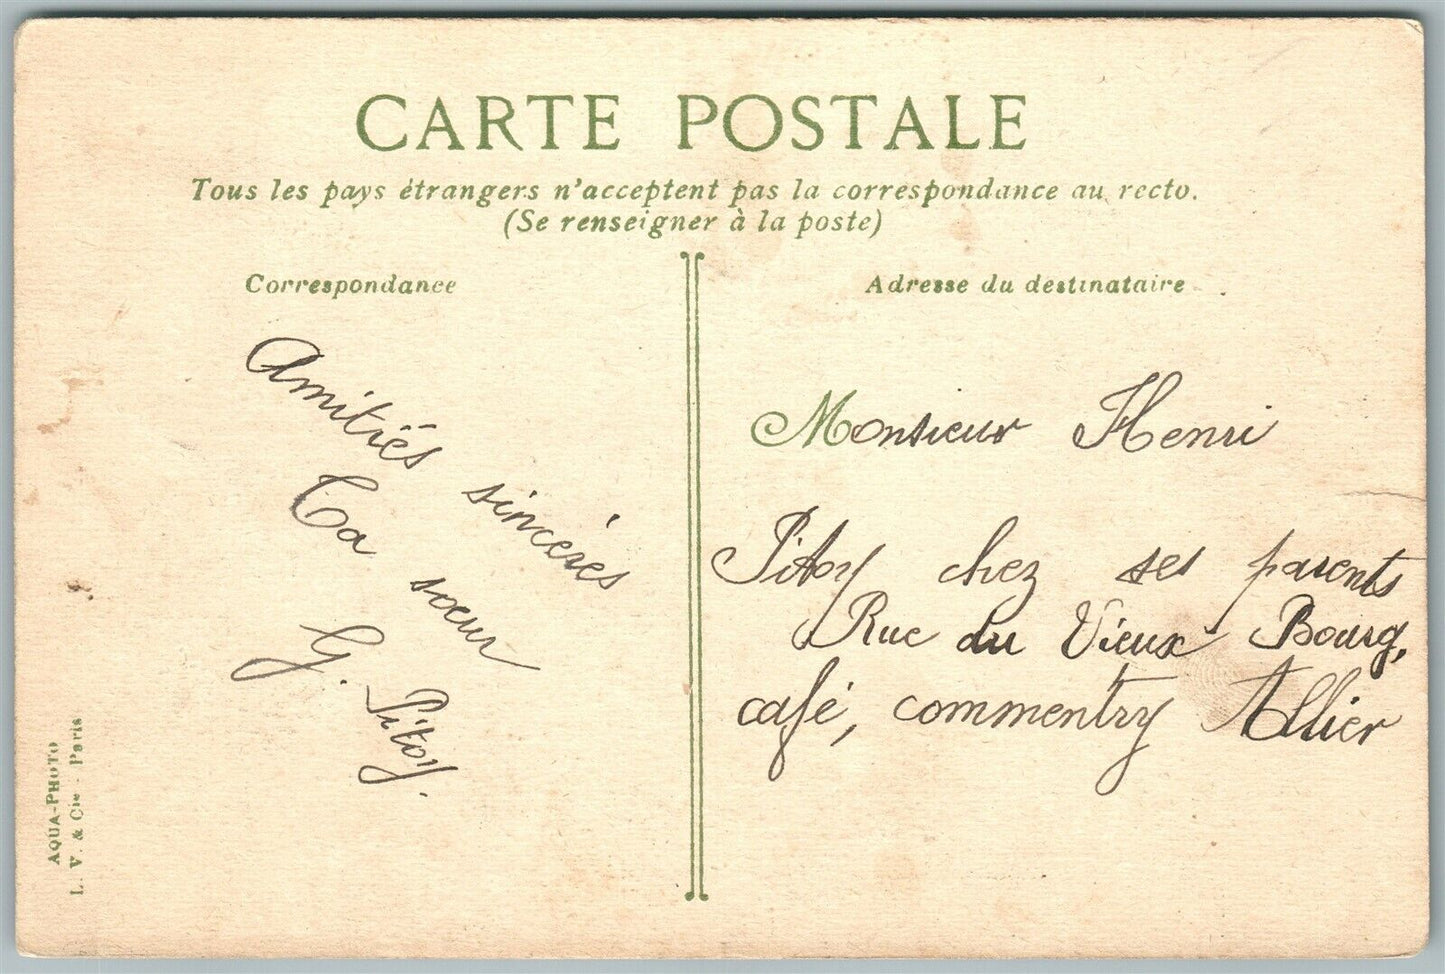 CARTE POSTALE
Tous les pays étrangers n'acceptent pas la correspondance au recto.
(Se renseigner à la poste)
Correspondance
Amitiés sincères
Ta sœur
G. Pitoy.
Adresse du destinataire
Monsieur Henri
Pitoy chez ses parents
Rue du Vieux Bourg,
café, commentry Allier
AQUA-PHOTO
L. V. & Cie - Paris